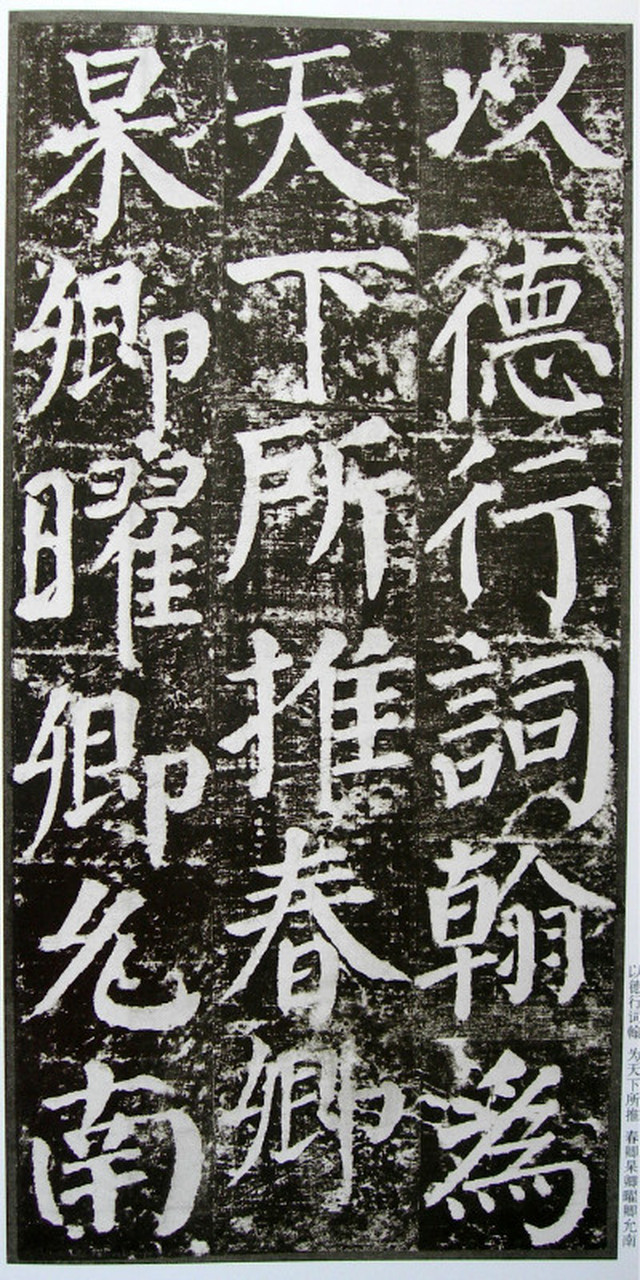 以德行詞翰為
天下所推春卿
杲卿曜卿允南
以德行词翰 为天下所推 春卿杲卿曜卿允南